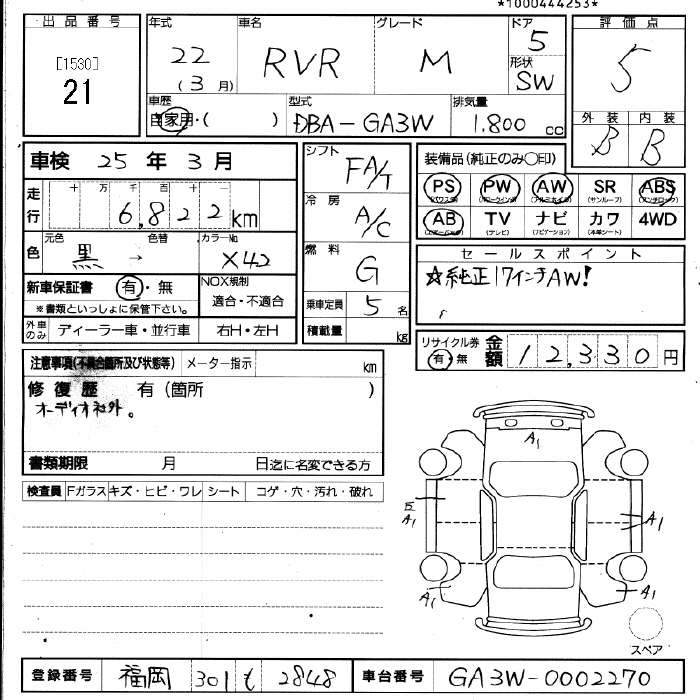 *1000444253*
出品番号
[1530]
21
年式 車名 グレード ドア 評価点
22 RVR M 5 5
(3月) 形状
SW
車歴 型式 排気量 外装 内装
自家用・( ) DBA-GA3W 1.800 cc B B
車検 25年 3月
走行 十 万 千 百 十 一
6,822 km
色 元色 色替 カラーNo
黒 → X42
新車保証書 有・無 NOX規制
※書類といっしょに保管下さい。 適合・不適合
外車のみ ディーラー車・並行車 右H・左H
シフト FA/T
冷房 A/C
燃料 G
乗車定員 5 名
積載量 kg
装備品(純正のみ〇印)
PS PW AW SR ABS
(パワステ) (パワーウインド) (アルミホイル) (サンルーフ) (アンチロック)
AB TV ナビ カワ 4WD
(エアーバッグ) (テレビ) (ナビゲーション) (本革シート)
セールスポイント
☆純正17インチAW!
リサイクル券 金額
有・無 12,330円
注意事項(不具合箇所及び状態等) メーター指示 km
修復歴 有(箇所 )
オーディオ社外。
書類期限 月 日迄に名変できる方
検査員 Fガラス キズ・ヒビ・ワレ シート コゲ・穴・汚れ・破れ
A1
A1
A1
A1
A1
スペア
登録番号 福岡 301 も 2848 車台番号 GA3W-0002270